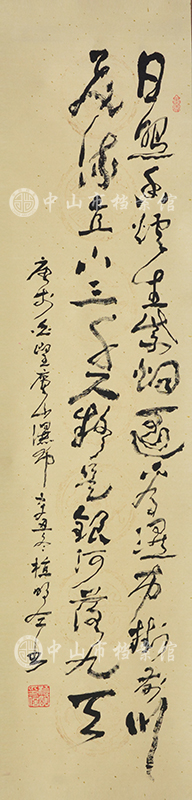 日照香炉生紫烟遥看瀑布掛前川
飛流直下三千尺疑是銀河落九天
唐李白望廬山瀑布辛丑冬
中山市档案馆
中山市档案馆